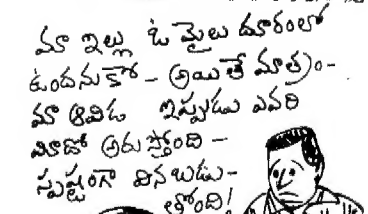 మా ఇల్లు ఓ మైలు దూరంలో
ఉందనుకో - అయితే మాత్రం -
మా ఆవిడ ఇప్పుడు ఎవరి
మీదో అరుస్తోంది -
స్పష్టంగా వినబడు-
తోంది!